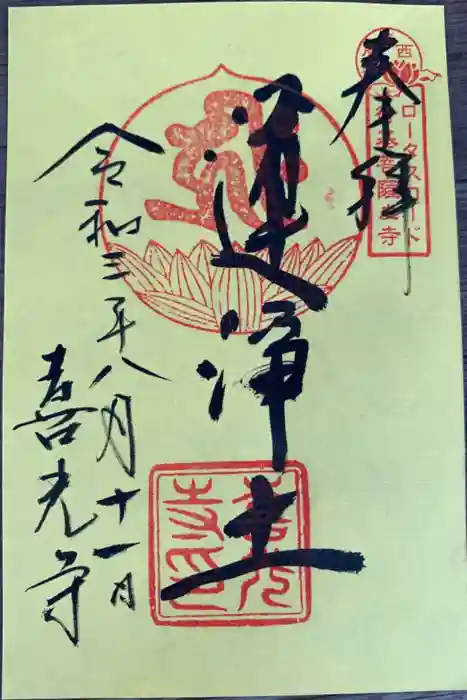 奉拝
西
ロータスロード
蓮浄土
令和三年八月十一日
喜光寺
喜光寺印